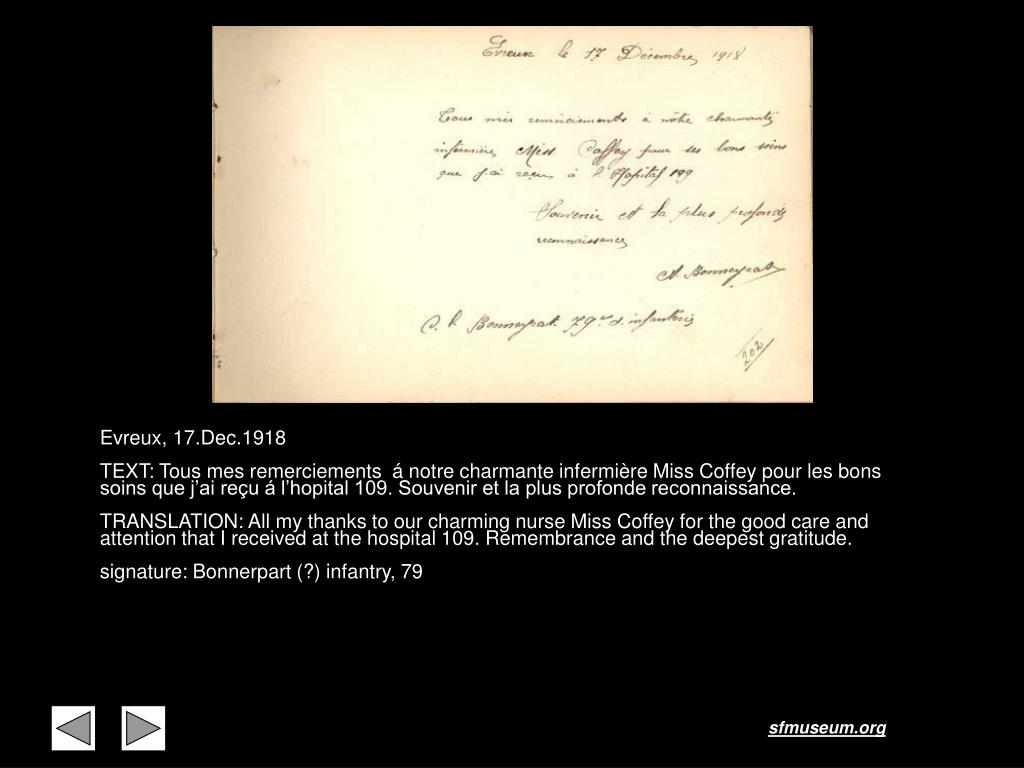 Evreux le 17 Décembre 1918
Tous mes remerciements à nôtre charmante
infirmière Miss Coffey pour les bons soins
que j'ai reçu à l'Hopital 109
Souvenir et la plus profonde
reconnaissance
Bonneyrat
Bonneyrat 79e d'infanterie
202
Evreux, 17.Dec.1918
TEXT: Tous mes remerciements á notre charmante infermière Miss Coffey pour les bons
soins que j’ai reçu á l’hopital 109. Souvenir et la plus profonde reconnaissance.
TRANSLATION: All my thanks to our charming nurse Miss Coffey for the good care and
attention that I received at the hospital 109. Remembrance and the deepest gratitude.
signature: Bonnerpart (?) infantry, 79
sfmuseum.org